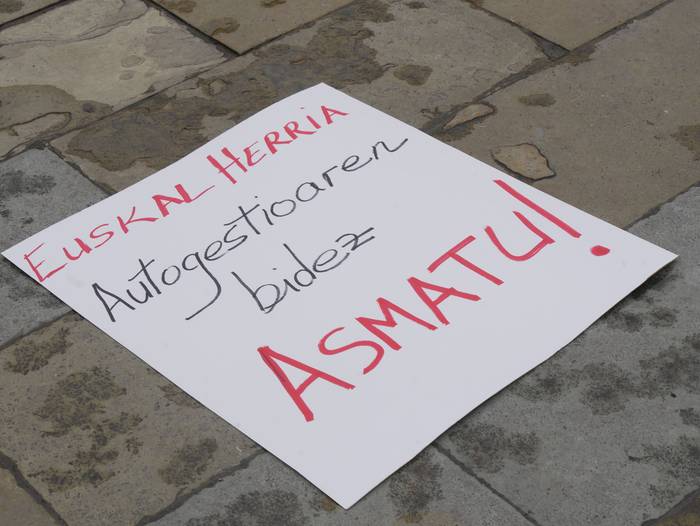 EUSKAL HERRIA
Autogestioaren
bidez
ASMATU!